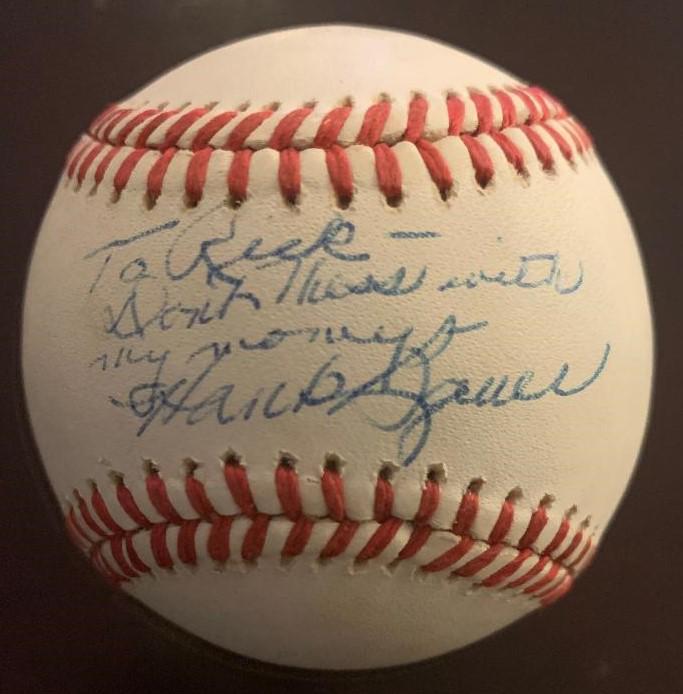 To Rick -
Don't Mess with
my money
Hank Bauer